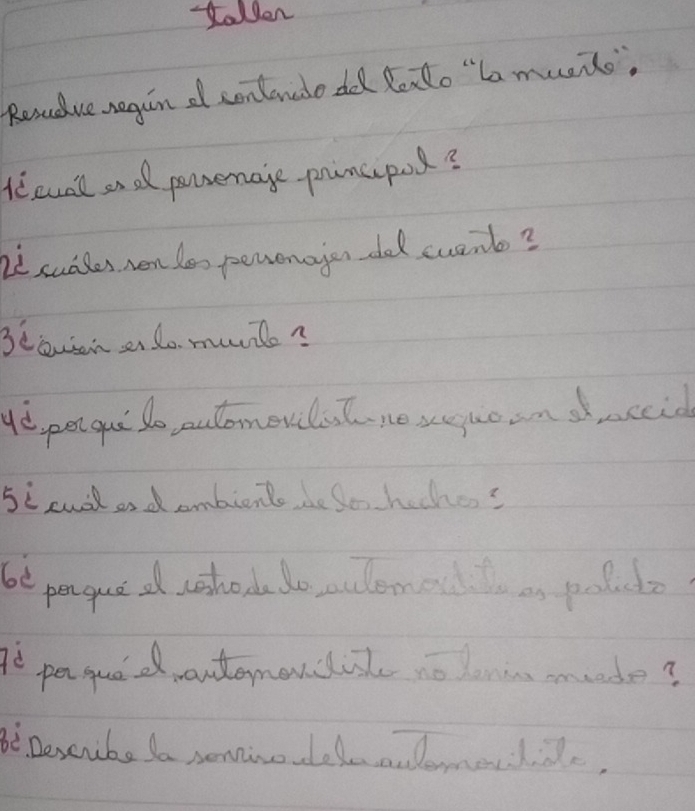 taller
Resuelve según el contenido del texto "la muerte".
1¿cuál es el personaje principal?
2¿cuáles son los personajes del cuento?
3¿Quien es la muerte?
4¿porqué la automovilista no en el accide
5¿cuál es el ambiente de los hechos?
6¿porqué el rostro de la automovilista es palido
7¿por qué el automovilista no tenia miedo?
8¿Describe la sonrisa de la automovilista.